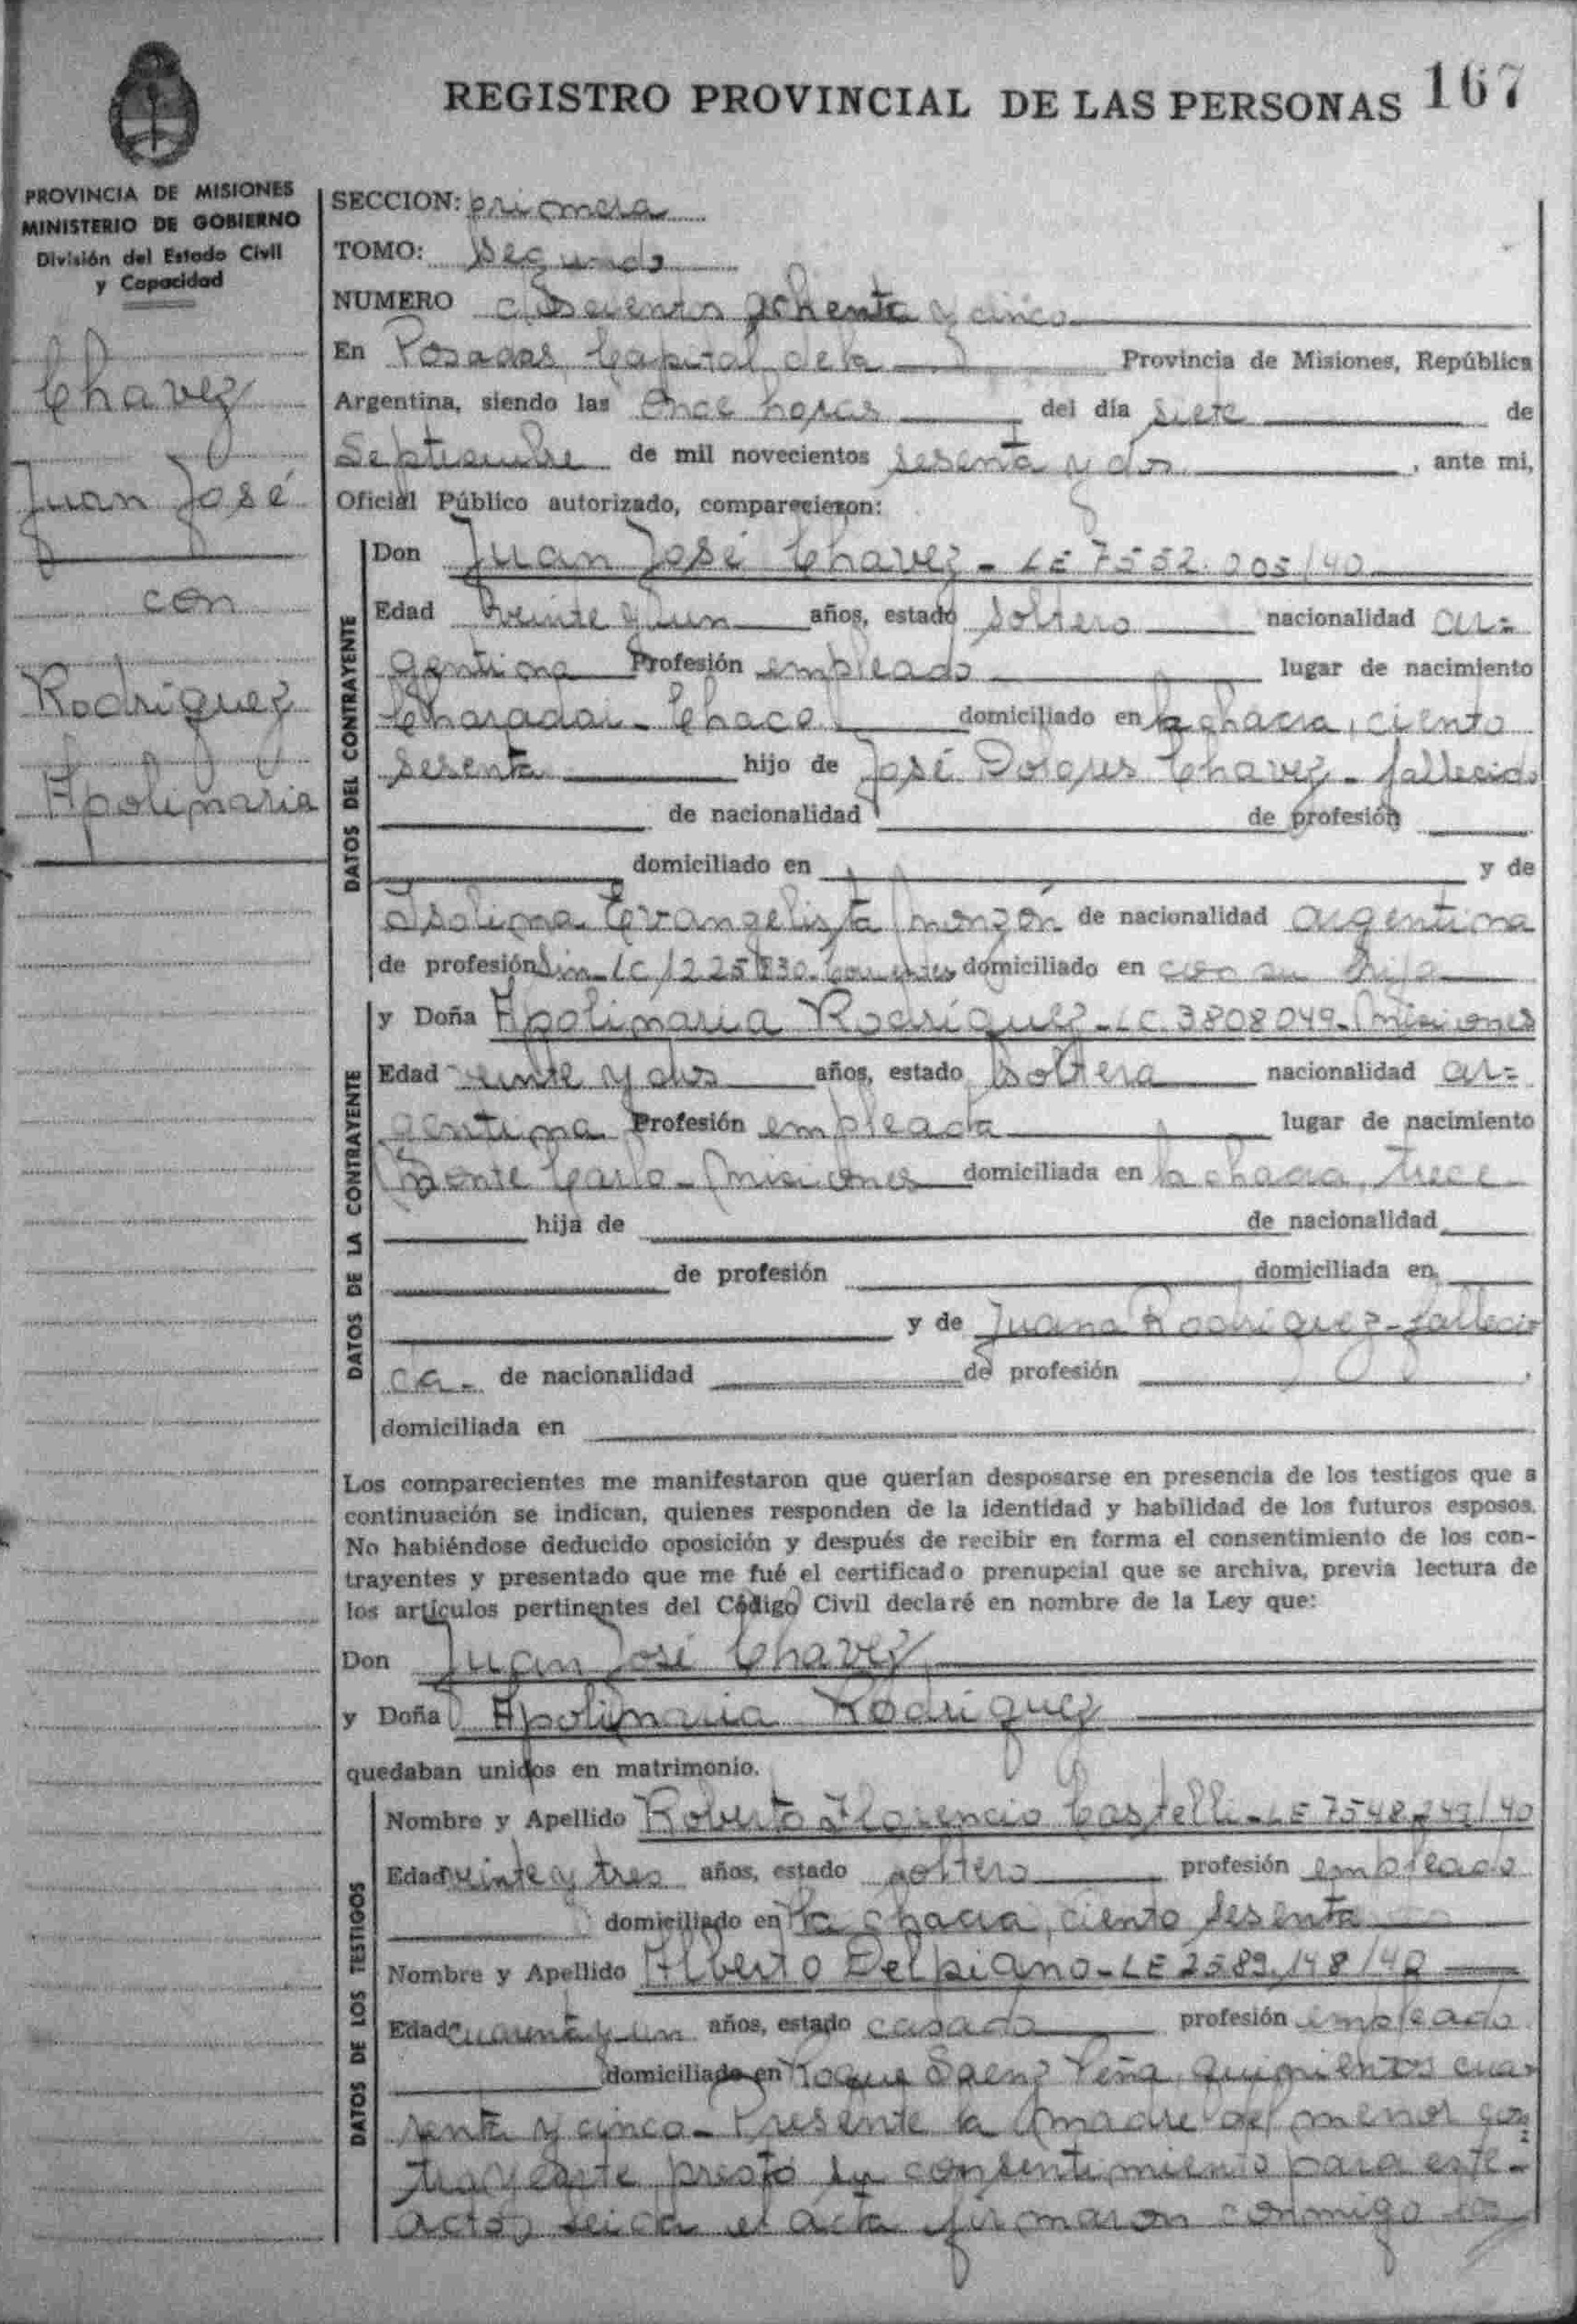 REGISTRO PROVINCIAL DE LAS PERSONAS 167
PROVINCIA DE MISIONES
MINISTERIO DE GOBIERNO
División del Estado Civil
y Capacidad
Chavez
Juan José
con
Rodriguez
Apolinaria
SECCION: primera
TOMO: Segundo
NUMERO doscientos ochenta y cinco
En Posadas, Capital de la Provincia de Misiones, República
Argentina, siendo las once horas del día siete de
Septiembre de mil novecientos sesenta y dos, ante mi,
Oficial Público autorizado, comparecieron:
DATOS DEL CONTRAYENTE
Don Juan José Chavez - LE 7552.005/40
Edad veinte y un años, estado soltero nacionalidad ar=
gentina Profesión empleado lugar de nacimiento
Charadai - Chaco domiciliado en la chacra, ciento
sesenta hijo de José Dolores Chavez - fallecido
de nacionalidad de profesión
domiciliado en y de
Isolina Evangelista Monzón de nacionalidad argentina
de profesión Sin - LC domiciliado en su
DATOS DE LA CONTRAYENTE
y Doña Apolinaria Rodríguez - LC 3808049 - Misiones
Edad veinte y dos años, estado soltera nacionalidad ar=
gentina Profesión empleada lugar de nacimiento
Monte Carlo - Misiones domiciliada en la chacra, trece
hija de de nacionalidad
de profesión domiciliada en
y de Juana Rodriguez - falleci
da - de nacionalidad de profesión ,
domiciliada en
Los comparecientes me manifestaron que querían desposarse en presencia de los testigos que a
continuación se indican, quienes responden de la identidad y habilidad de los futuros esposos.
No habiéndose deducido oposición y después de recibir en forma el consentimiento de los con-
trayentes y presentado que me fué el certificado prenupcial que se archiva, previa lectura de
los artículos pertinentes del Código Civil declaré en nombre de la Ley que:
Don Juan José Chavez
y Doña Apolinaria Rodriguez
quedaban unidos en matrimonio.
DATOS DE LOS TESTIGOS
Nombre y Apellido Roberto Florencio Castelli - LE 7548.249/40
Edad veinte y tres años, estado soltero profesión empleado
domiciliado en la chacra, ciento sesenta
Nombre y Apellido Alberto Delpiano - LE 2589.148/40
Edad cuarenta y un años, estado casado profesión empleado
domiciliado en Roque Saenz Peña, quinientos cua
renta y cinco - Presente la madre del menor con=
trayente prestó su consentimiento para este -
acto, leida el acta firmaron conmigo los